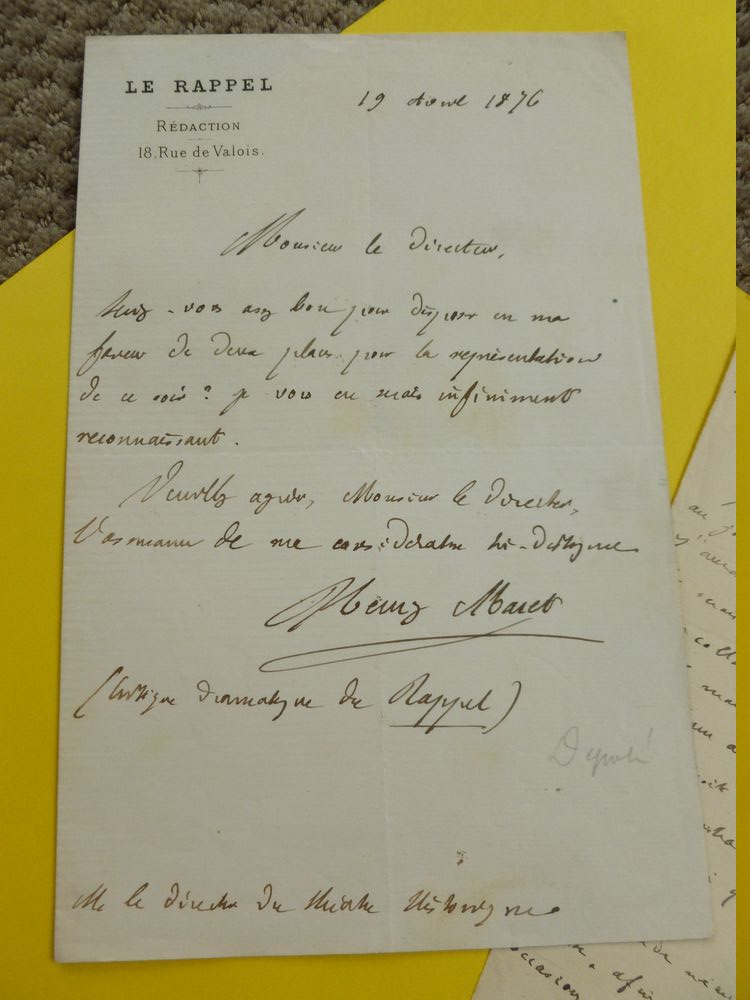 LE RAPPEL
RÉDACTION
18, Rue de Valois.
19 Avril 1876
Monsieur le Directeur,
Serez-vous assez bon pour disposer en ma
faveur de deux places pour la représentation
de ce soir ? je vous en serais infiniment
reconnaissant.
Veuillez agréer, Monsieur le Directeur,
l'assurance de ma considération très-distinguée
Henry Maret
(Critique dramatique du Rappel)
Député
M. le directeur du théâtre historique
au
coll
ma
afin
occasion